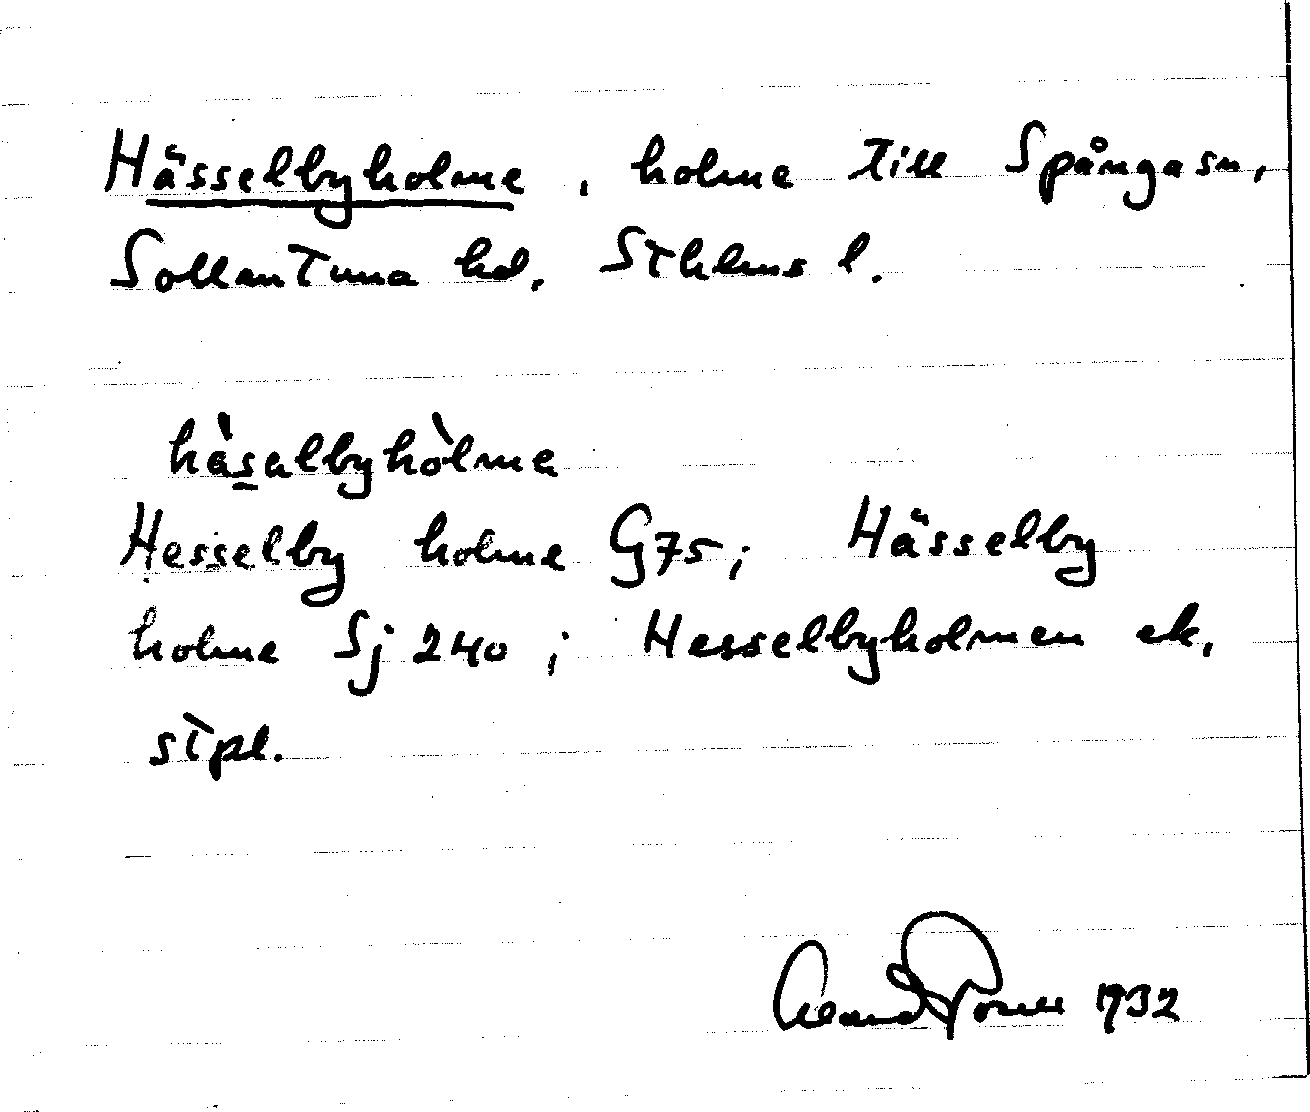 Hässelbyholme, holme till Spånga sn,
Sollentuna hd. Sthlms l.
hàsalbyhòlma
Hesselby holme G75; Hässelby
holme Sj 240; Hesselbyholmen ek.
stpl.
1932